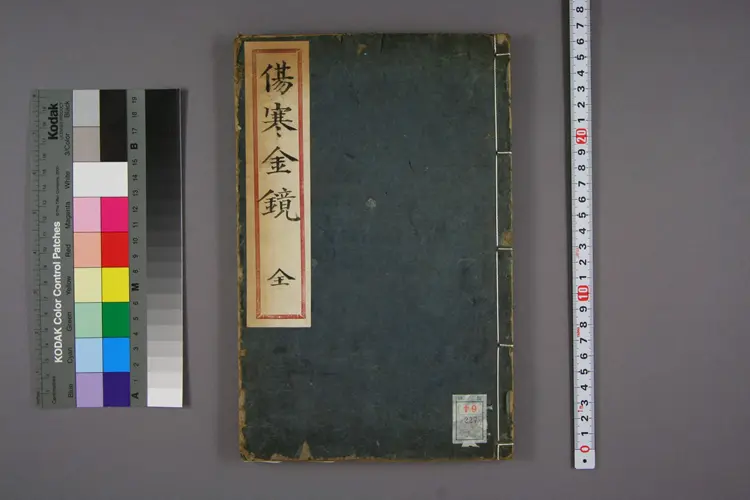 傷寒金鏡
全
19
227
Kodak
KODAK Color Control Patches
Blue
Cyan
Green
Yellow
Red
Magenta
White
3/Color
Black
A 1 2 3 4 5 6 M 8 9 10 11 12 13 14 15 B 17 18 19
0 1 2 3 4 5 6 7 8 9 10 1 2 3 4 5 6 7 8 9 20 1 2 3 4 5 6 7 8